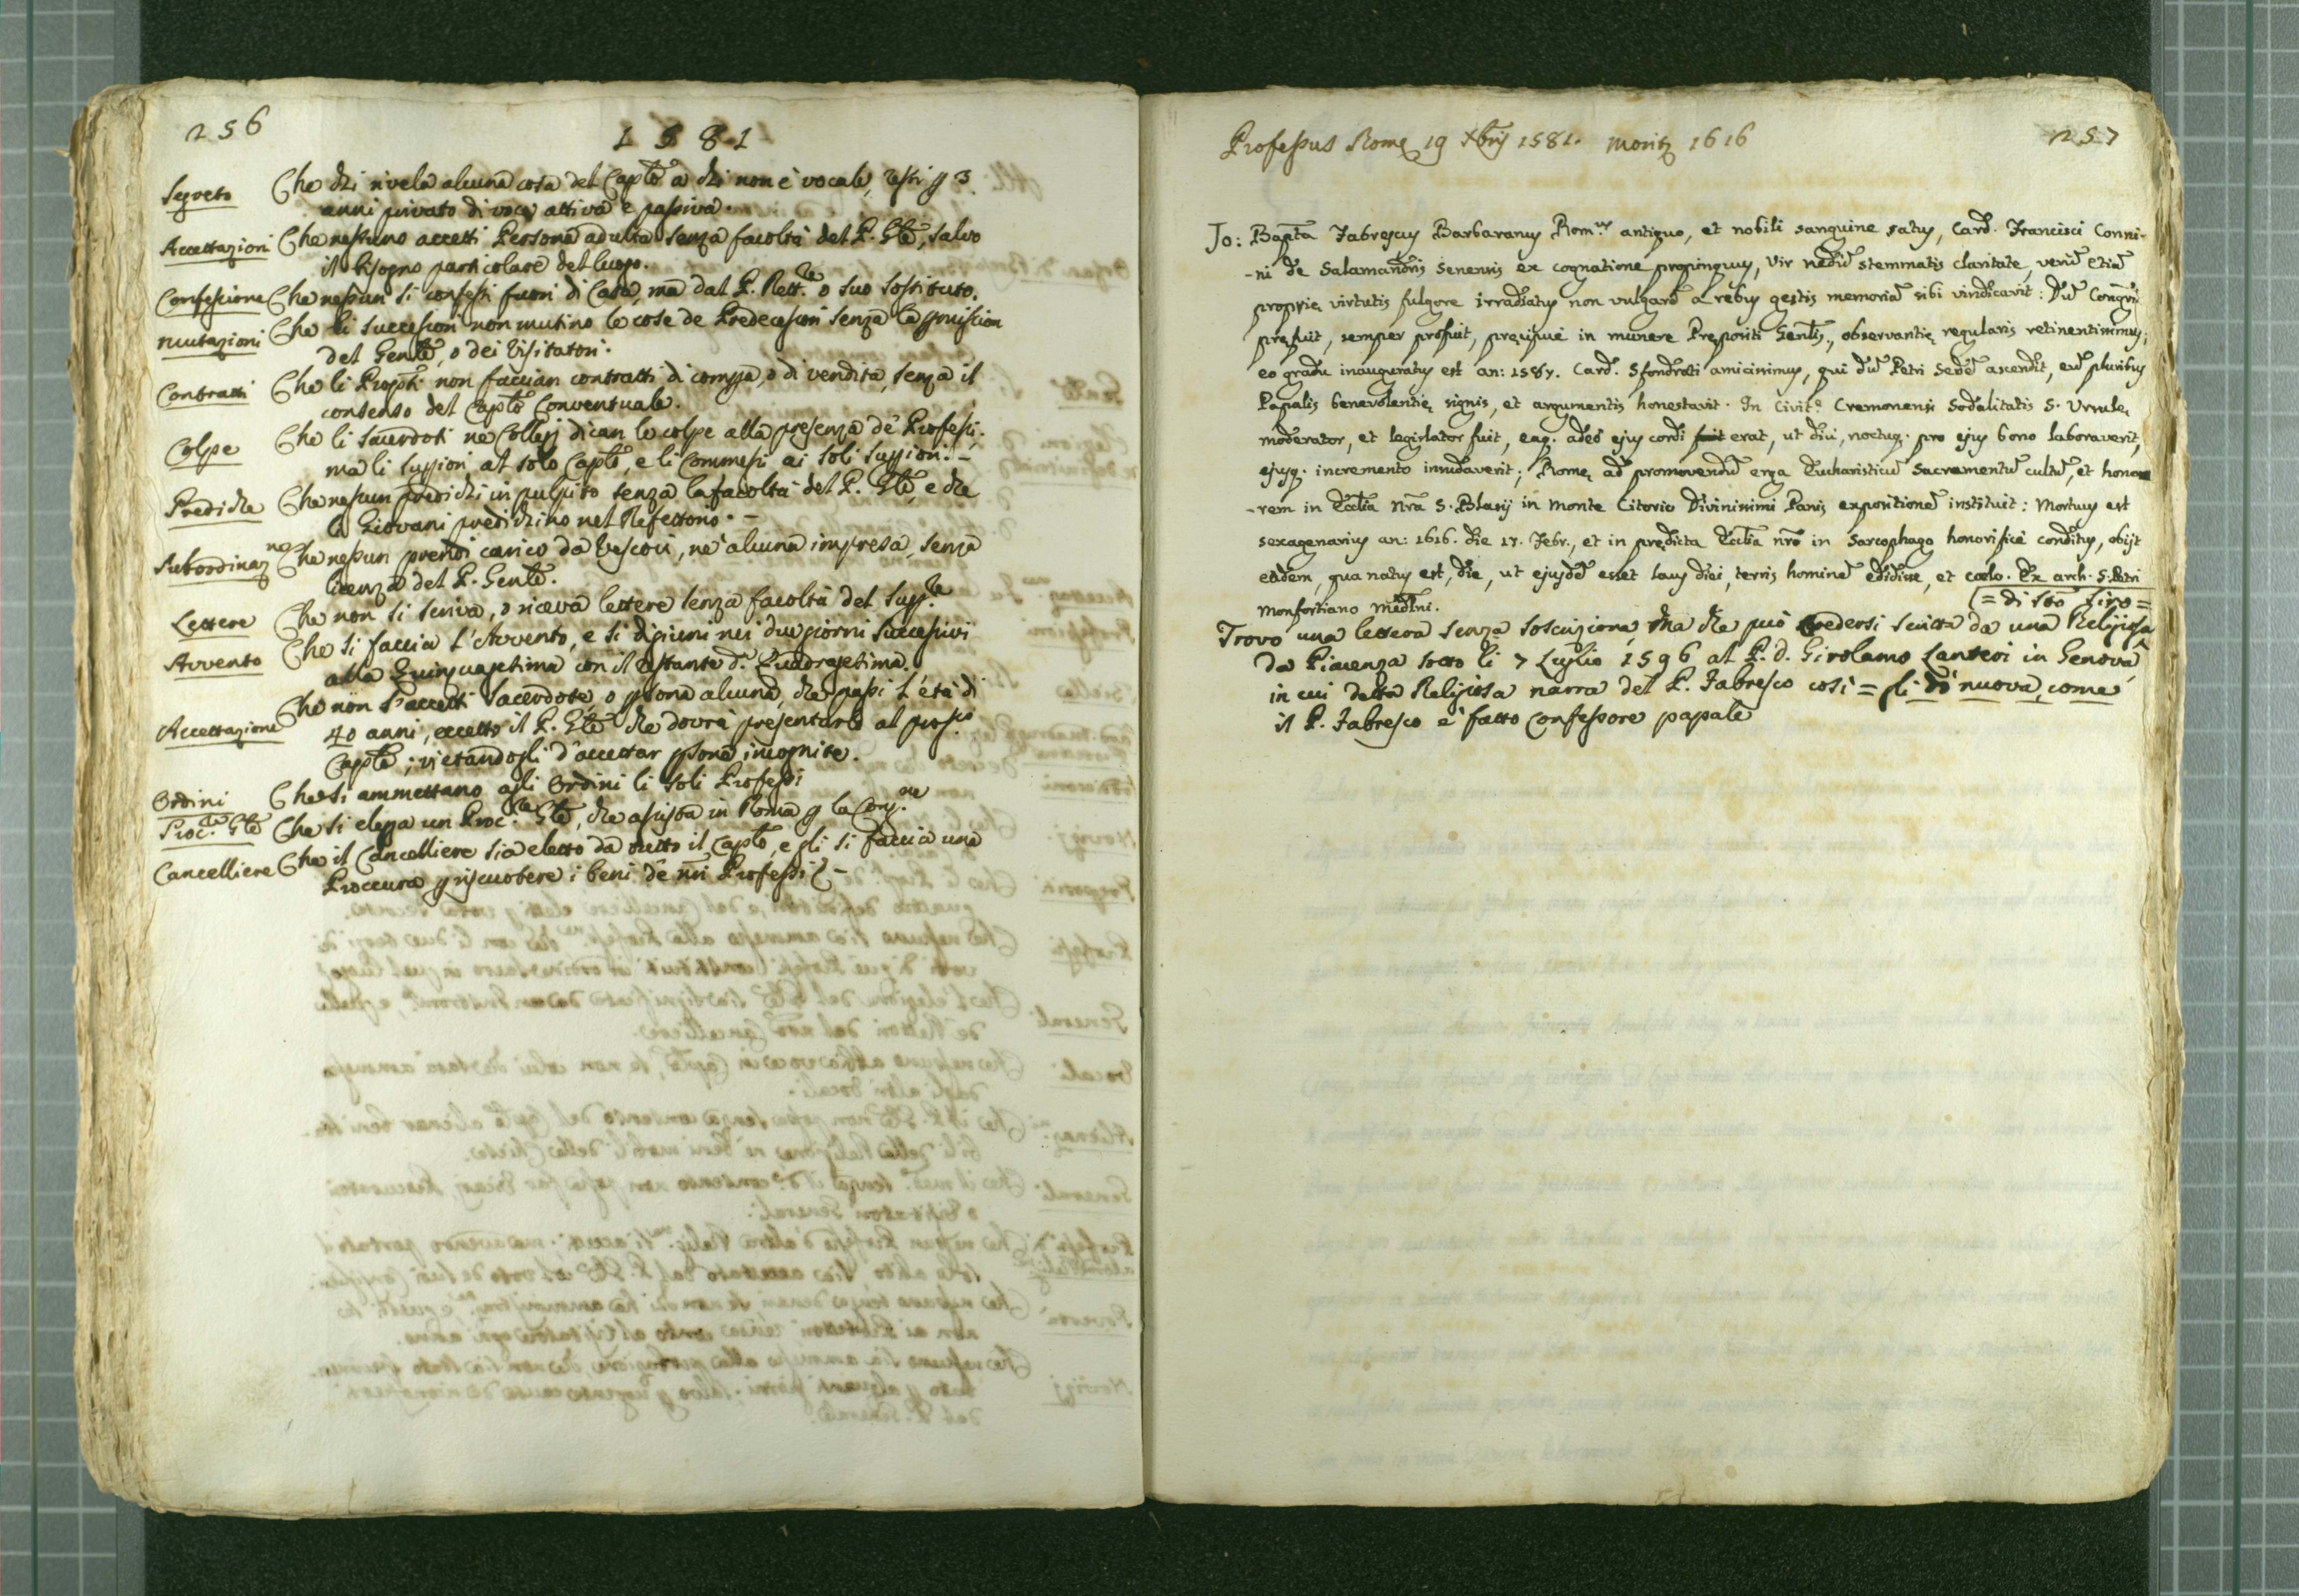 256
1581
Segreto Che chi rivela alcuna cosa del Capto a chi non è vocale, resti p 3
anni privato di voce attiva e passiva.
Accettazioni Che nessuno accetti Persona adulta senza facoltà del P. Gle, salvo
il bisogno particolare del luogo.
Confessione Che nessun si confessi fuori di Casa, ma dal P. Rett.re o suo sostituto.
Mutazioni Che li successori non mutino le cose de Predecessori senza la pmission
del Genle, o dei Visitatori.
Contratti Che li Propti non faccian contratti di compra, o di vendita, senza il
consenso del Capto Conventuale.
Colpe Che li Sacerdoti ne Collegj dican le colpe alla presenza de' Professi;
ma li supiori al solo Capto, e li Commessi ai soli supiori. -
Prediche Che nessun predichi in pulpito senza la facoltà del P. Gle, e che
li Giovani predichino nel Refettorio. -
Subordinaz.ne Che nessun prendi carico da Vescovi, ne alcuna impresa, senza
licenza del P. Genle.
Lettere Che non si scriva, o riceva lettere senza facoltà del Supp.re
Avvento Che si faccia l'Avvento, e si digiuni nei due giorni successivi
alla Quinquagesima con il restante d. Quadragesima.
Accettazione Che non s'accetti Sacerdote, o psona alcuna, che passi l'età di
40 anni, eccetto il P. Gle che dovrà presentarlo al pross.o
Capto; vietandogli d'accettar psona incognite.
Ordini Che si ammettano agli Ordini li soli Professi
Proc.re Gle Che si elegga un Proc.re Gle, che assista in Roma p la Cong.ne
Cancelliere Che il Cancelliere sia eletto da tutto il Capto, e gli si faccia una
Proccura p riscuotere i beni de' nri Professi -
Professus Romę 19 Xbris 1581. Moritr 1616
257
Jo: Bapta Fabrescus Barbaranus Rom.us antiquo, et nobili sanguine satus, Card. Francisci Conni-
-ni de Salamandris Senensis ex cognatione propinquus, Vir nedu stemmatis claritate, veru etia
proprię virtutis fulgore irradiatus non vulgare a rebus gestis memoria sibi vindicavit: Du Congni
pręfuit, semper profuit, pręcipuè in munere Prępositi Genlis, observantię regularis retinentissimus;
eo gradu inauguratus est an: 1587. Card. Sfondrati amicissimus, qui du Petri Sede ascendit, eu pluribus
Papalis benevolentię signis, et argumentis honestavit. In Civit.e Cremonensi Sodalitatis S. Ursulę
moderator, et legislator fuit, eaq. adeò ejus cordi erat, ut diu, noctuq. pro ejus bono laboraverit,
ejusq. incremento insudaverit; Romę ad promovendu erga Eucharisticu Sacramentu cultu, et hono
-rem in Eccla nra S. Blasij in Monte Citorio Divinissimi Panis expositione instituit: Mortuus est
sexagenarius an: 1616. die 17. Febr., et in prędicta Eccla nra in Sarcophago honorificè conditus, obijt
eadem, qua natus est, die, ut ejusde esset laus diei, terris homine edidisse, et cœlo. Ex arch. S. Petri
Monfortiano Medlni.
= di sto Siro =
Trovo una lettera senza soscrizione, Ma che può credersi scritta da una Religiosa
da Piacenza sotto li 7 Luglio 1596 al P. d. Girolamo Lanteri in Genova,
in cui detta Religiosa narra del P. Fabresco così = gli dò nuova, come
il P. Fabresco è fatto Confessore papale